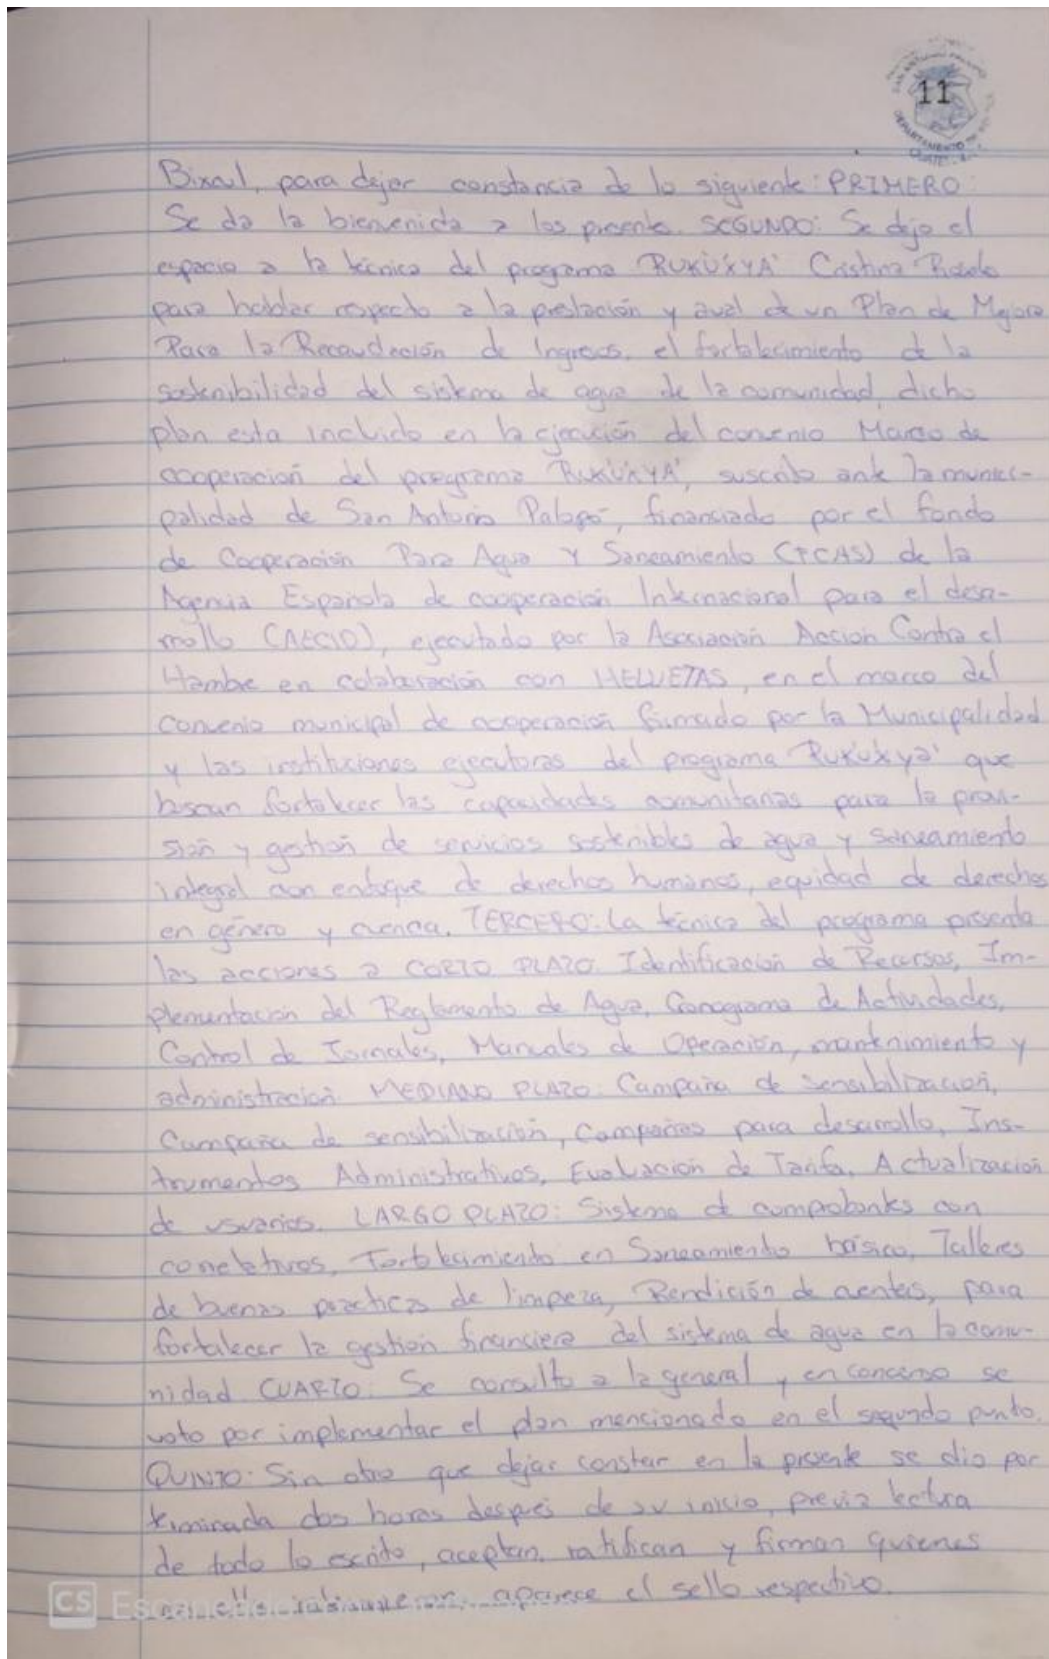 11
Bixcul, para dejar constancia de lo siguiente: PRIMERO:
Se da la bienvenida a los presente. SEGUNDO: Se dejo el
espacio a la técnica del programa RUKUX'YA' Cristina
para hablar respecto a la prestación y aval de un Plan de Mejora
Para la Recaudación de Ingresos, el fortalecimiento de la
sostenibilidad del sistema de agua de la comunidad, dicho
plan esta incluido en la ejecución del convenio Marco de
cooperación del programa RUKUX'YA', suscrito ante la munici-
palidad de San Antonio Palopó, financiado por el fondo
de Cooperación Para Agua y Saneamiento (FCAS) de la
Agencia Española de cooperación Internacional para el desa-
rrollo (AECID), ejecutado por la Asociación Acción Contra el
Hambre en colaboración con HELVETAS, en el marco del
convenio municipal de cooperación firmado por la Municipalidad
y las instituciones ejecutoras del programa Rukuxya' que
buscan fortalecer las capacidades comunitarias para la provi-
sión y gestión de servicios sostenibles de agua y saneamiento
integral con enfoque de derechos humanos, equidad de derechos
en género y cuenca. TERCERO: La técnica del programa presenta
las acciones a CORTO PLAZO: Identificación de Recursos, Im-
plementación del Reglamento de Agua, Cronograma de Actividades,
Control de Jornales, Manuales de Operación, mantenimiento y
administración. MEDIANO PLAZO: Campaña de sensibilización,
Campaña de sensibilización, Campañas para desarrollo, Ins-
trumentos Administrativos, Evaluación de Tarifa, Actualización
de usuarios. LARGO PLAZO: Sistema de comprobantes con
correlativos, Fortalecimiento en Saneamiento básico, Talleres
de buenas practicas de limpieza, Rendición de cuentas, para
fortalecer la gestión financiera del sistema de agua en la comu-
nidad CUARTO: Se consulto a la general, y en concenso se
voto por implementar el plan mencionado en el segundo punto.
QUINTO: Sin otro que dejar constar en la presente se dio por
terminada dos horas después de su inicio, previa lectura
de todo lo escrito, aceptan, ratifican y firman quienes
aparece el sello respectivo.
CS